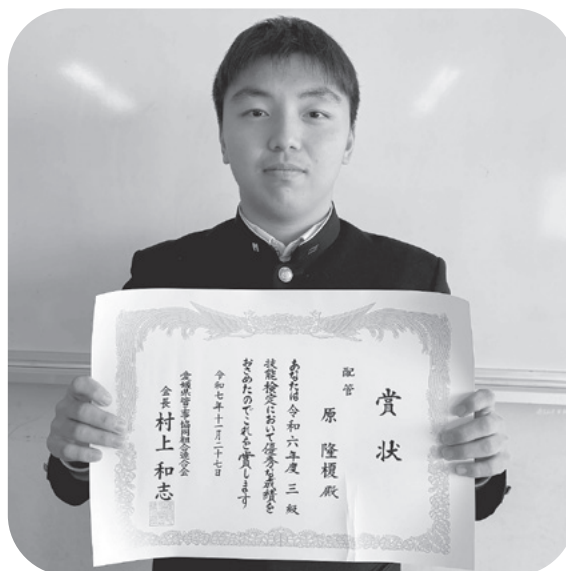 賞状
配管
原 隆榎 殿
あなたは令和六年度 三級
技能検定において優秀な成績を
おさめたのでこれを賞します
令和七年十一月二十七日
愛媛県管工事協同組合連合会
会長 村上和志